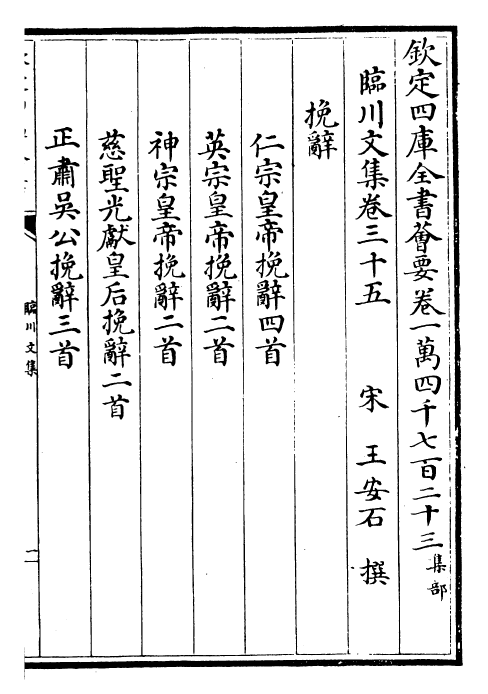 欽定四庫全書薈要卷一萬四千七百二十三集部
臨川文集卷三十五 宋 王安石 撰
挽辭
仁宗皇帝挽辭四首
英宗皇帝挽辭二首
神宗皇帝挽辭二首
慈聖光獻皇后挽辭二首
正肅吳公挽辭三首
臨川文集